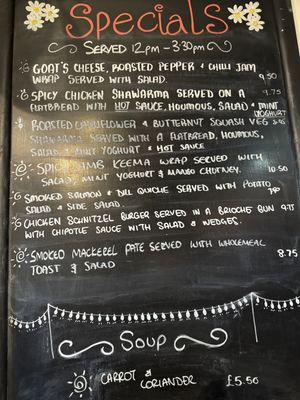 Specials
SERVED 12pm - 3:30pm
GOAT'S CHEESE, ROASTED PEPPER & CHILLI JAM
WRAP SERVED WITH SALAD. 9.50
SPICY CHICKEN SHAWARMA SERVED ON A 9.75
FLATBREAD WITH HOT SAUCE, HOUMOUS, SALAD & MINT
YOGHURT
ROASTED CAULIFLOWER & BUTTERNUT SQUASH VEG
SHAWARMA SERVED WITH A FLATBREAD, HOUMOUS,
SALAD & MINT YOGHURT & HOT SAUCE
SPICY LAMB KEEMA WRAP SERVED WITH
SALAD, MINT YOGHURT & MANGO CHUTNEY. 10.50
SMOKED SALMON & DILL QUICHE SERVED WITH POTATO
SALAD & SIDE SALAD.
CHICKEN SCHNITZEL BURGER SERVED IN A BRIOCHE BUN 9.75
WITH CHIPOTLE SAUCE WITH SALAD & WEDGES.
SMOKED MACKEREL PATE SERVED WITH WHOLEMEAL
TOAST & SALAD 8.75
SOUP
CARROT &
CORIANDER £5.50